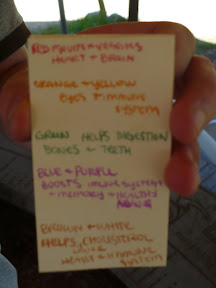 RED FRUITS + VEGGIES
HEART + BRAIN
ORANGE + YELLOW
EYES + IMMUNE
SYSTEM
GREEN HELPS DIGESTION
BONES + TEETH
BLUE + PURPLE
BOOSTS IMMUNE SYSTEM
+ MEMORY + HEALTHY
AGING
BROWN + WHITE
HELPS CHOLESTEROL
HEART + IMMUNE
SYSTEM